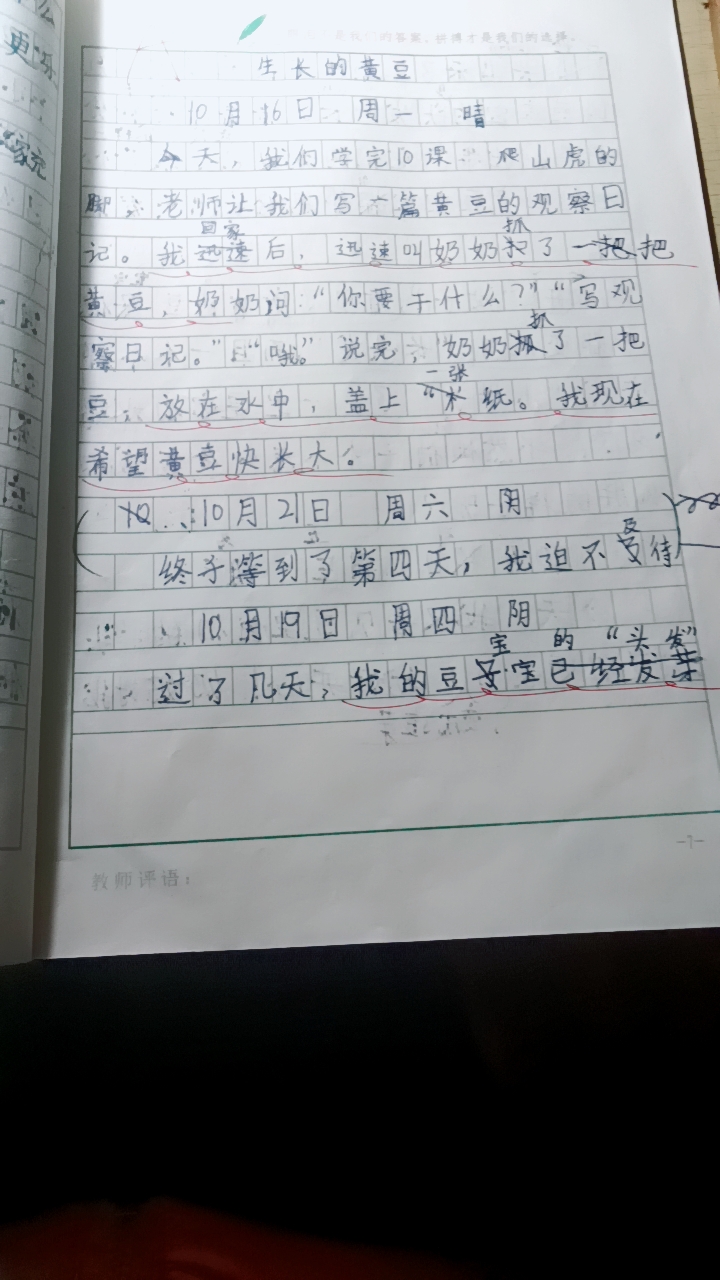 的答案，选择才是我们的选择。
生长的黄豆
10月16日 周一 晴
今天，我们学完10课 爬山虎的
脚，老师让我们写一篇黄豆的观察日
回家 抓
记。我迅速后，迅速叫奶奶了一把把
黄豆，奶奶问：“你要干什么？”“写观
抓
察日记。”“哦。”说完，奶奶抓了一把
一张
豆，放在水中，盖上“木纸。我现在
希望黄豆快长大。
10月21日 周六 阴
及
终于等到了第四天，我迫不待
10月19日 周四 阴
宝 的 “头发”
过了几天，我的豆宝已经发芽
-7-
教师评语：
更
家充